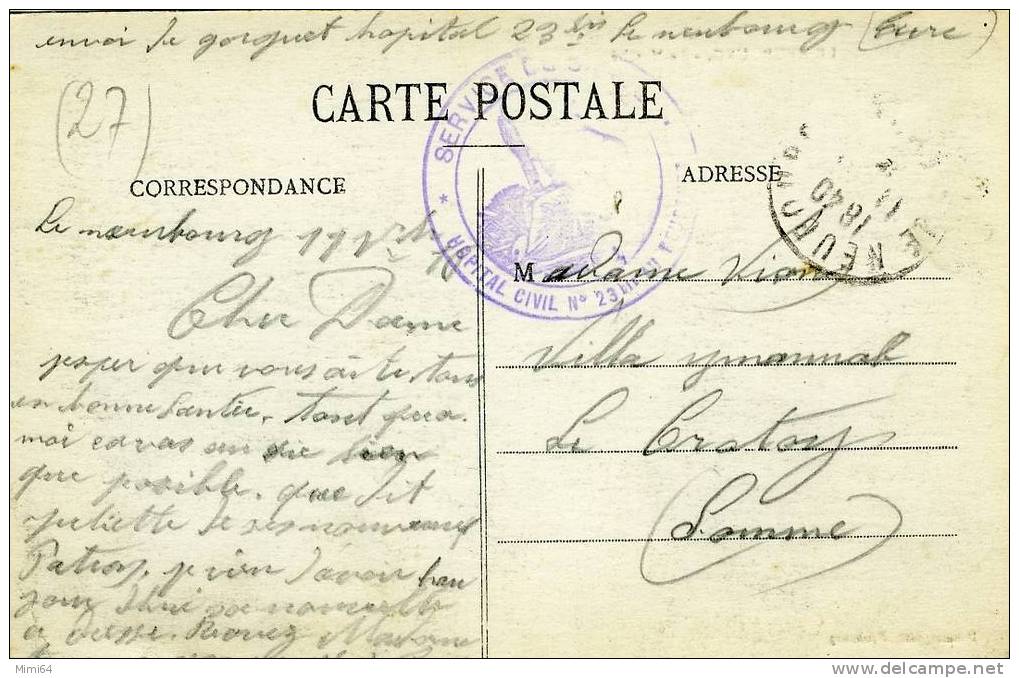 envoi de gorguet hopital 23 bis Le neubourg (Eure)
(27)
CARTE POSTALE
CORRESPONDANCE
ADRESSE
* SERVICE DE
HOPITAL CIVIL N° 23
NEUBOURG
18 40
Le neubourg
Cher Dame
jesper que vous aite tous
en bonne santée. tant qua
moi ca vas au sie bien
que possible. que dit
Juliette de ses nouveaux
Patron. je vien davoir
jour dhui sa nouvelle
adresse. Recevez Madame
Madame Vion
Villa
Le Crotoy
(Somme)
Mimi64
delcampe.net